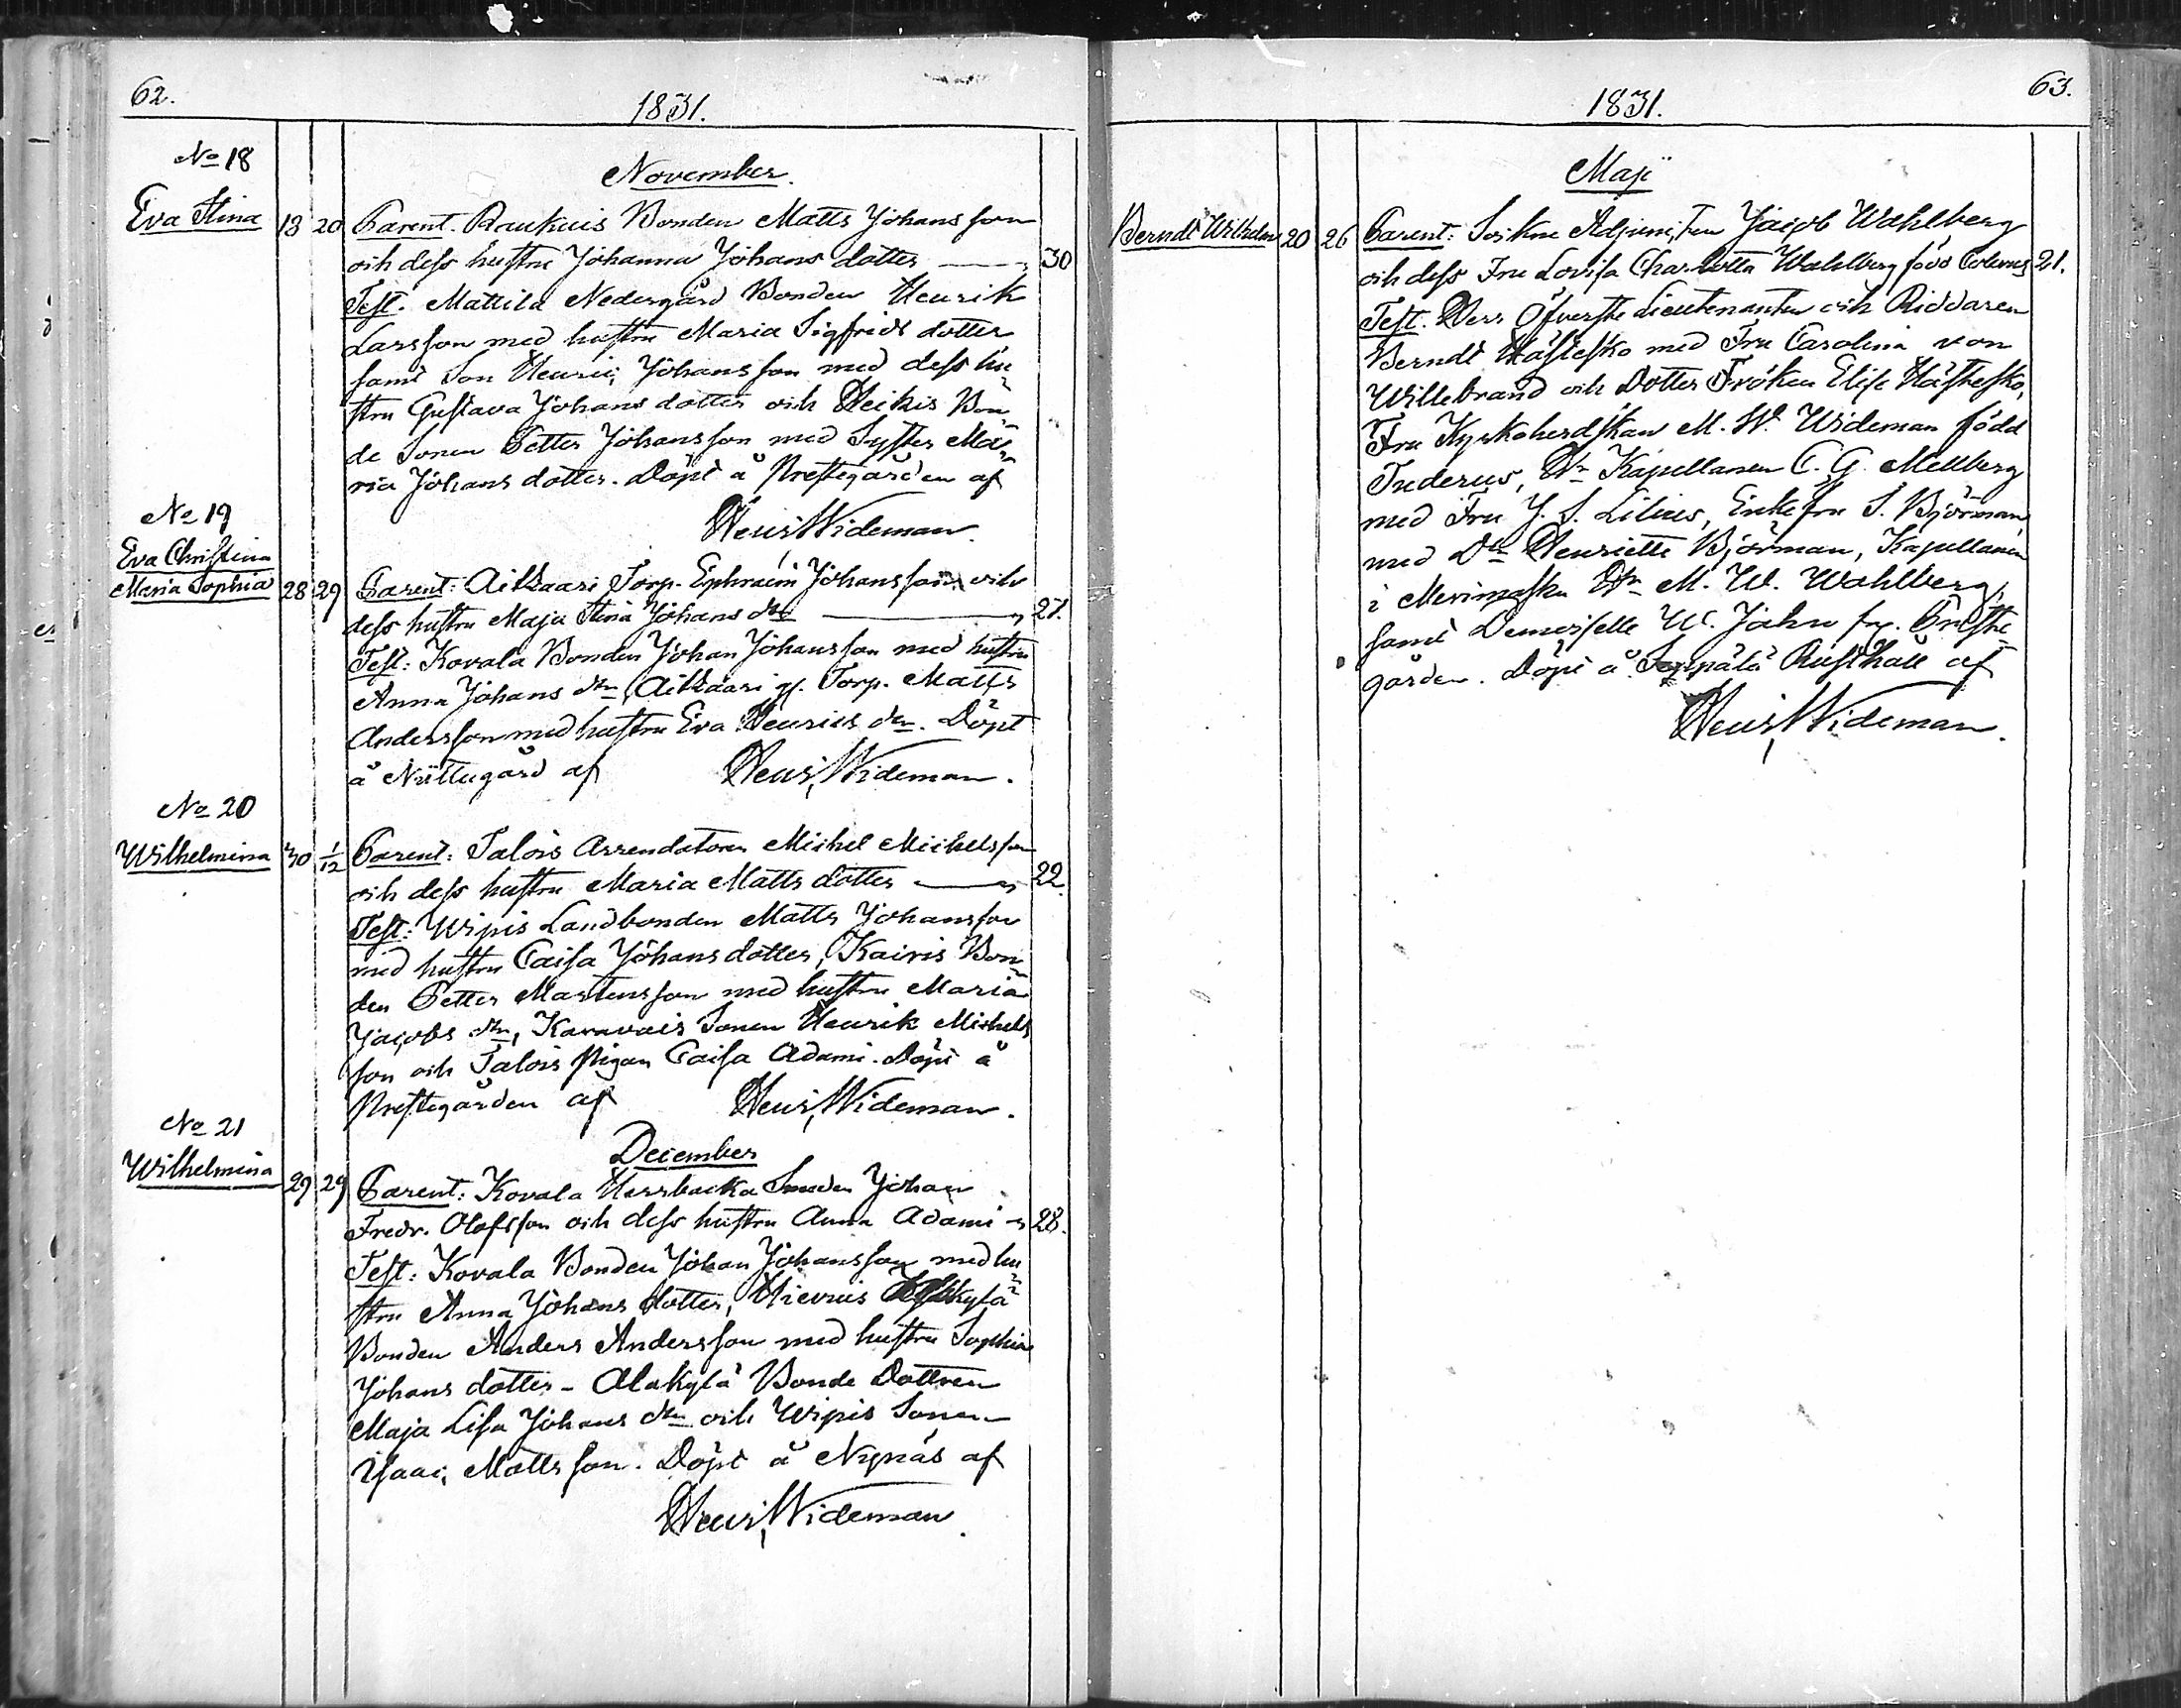 62.
1831.
No 18
November.
Eva Stina 13 20 Parent. Raukuis Bonden Matts Johansson
och dess hustru Johanna Johans dotter — 30
Test. Mattila Nedergård Bonden Henrik
Larsson med hustru Maria Sigfrids dotter
samt Son Henric Johansson med dess hu
stru Gustava Johans dotter och Heikis Bon
de Sonen Petter Johansson med Syster Ma
ria Johans dotter. Döpt å Prestegården af
Henr. Wideman.
No 19
Eva Christina
Maria Sophia 28 29 Parent: Aitkaari Torp. Ephraim Johansson och
dess hustru Maja Stina Johans dr — 27.
Test: Kovala Bonden Johan Johansson med hustru
Anna Johans dr, Aitkaari gl. Torp. Matts
Andersson med hustru Eva Henrics dr. Döpt
å Nüttugård af Henr. Wideman.
No 20
Wilhelmina 30 1/12 Parent: Talois Arrendatoren Michel Michelsson
och dess hustru Maria Matts dotter — 22.
Test: Wipis Landbonden Matts Johansson
med hustru Caisa Johans dotter, Kairis Bon
den Petter Martensson med hustru Maria
Jacobs dr, Karavais Sonen Henrik Michels
son och Talois Pigan Caisa Adami. Döpt å
Prestegården af Henr. Wideman.
No 21
December
Wilhelmina 29 29 Parent: Kovala Herrbacka Smeden Johan
Fredr. Olofsson och dess hustru Anna Adami 28.
Test: Kovala Bonden Johan Johansson med hu
stru Anna Johans dotter, Hievuis
Bonden Anders Andersson med hustru Sophia
Johans dotter - Alakylä Bonde Dottren
Maja Lisa Johans dr och Wipis Sonen
Isaac Mattsson. Döpt å Nynäs af
Henr. Wideman.
63.
1831.
Maji
Berndt Wilhelm 20 26 Parent: Sockne Adjuncten Jacob Wahlberg
och dess Fru Lovisa Charlotta Wahlberg född Colerus 21.
Test. Herr Öfverste Lieutenanten och Riddaren
Berndt Hästesko med Fru Carolina von
Willebrand och Dotter Fröken Elise Hästesko,
Fru Kyrkoherdskan M. W. Wideman född
Tuderus, Hr Kapellanen C. G. Mellberg
med Fru J. S. Lilius, Enkefru S. Björman
med Dr Henriette Björman, Kapellanen
i Merimasku Hr M. W. Wahlberg,
samt Demoiselle W. Jahn fr. Preste
gården. Döpt å Rusthåll af
Henr. Wideman.